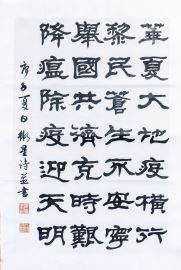 華夏大地疫橫行
黎民蒼生不安寧
舉國共濟克時艱
降瘟除疫迎天明
庚子夏日星詩並書